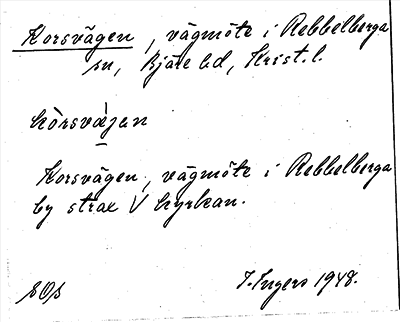 Korsvägen, vägmöte i Rebbelberga
sn, Bjäre hd, Krist. l.
kòrsvàjan
Korsvägen, vägmöte i Rebbelberga
by strax V kyrkan.
I. Ingers 1948.